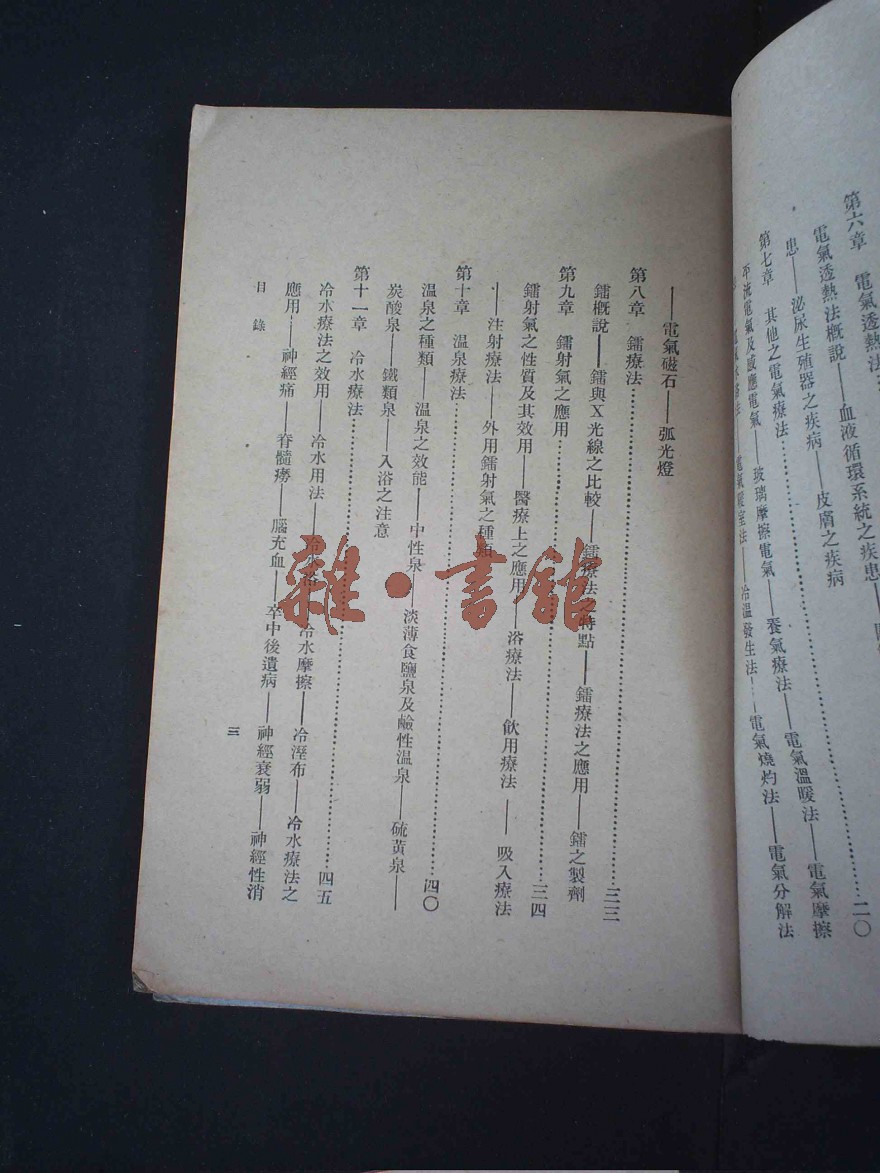 第六章 電氣透熱法
電氣透熱法概說——血液循環系統之疾患——
患——泌尿生殖器之疾病——皮膚之疾病
二〇
第七章 其他之電氣療法
平流電氣及感應電氣——玻璃摩擦電氣——養氣療法——電氣溫暖法——電氣摩擦
電氣暖室法——冷溫發生法——電氣燒灼法——電氣分解法
——電氣磁石——弧光燈
第八章 鐳療法……三三
鐳概說——鐳與X光線之比較——鐳療法之特點——鐳療法之應用——鐳之製劑
第九章 鐳射氣之應用……三四
鐳射氣之性質及其效用——醫療上之應用——浴療法——飲用療法——吸入療法
——注射療法——外用鐳射氣之種類
第十章 溫泉療法……四〇
溫泉之種類——溫泉之效能——中性泉——淡薄食鹽泉及鹼性溫泉——硫黃泉——
炭酸泉——鐵類泉——入浴之注意
第十一章 冷水療法……四五
冷水療法之效用——冷水用法——冷水浴——冷水摩擦——冷溼布——冷水療法之
應用——神經痛——脊髓癆——腦充血——卒中後遺病——神經衰弱——神經性消
目錄
三
雜·書館